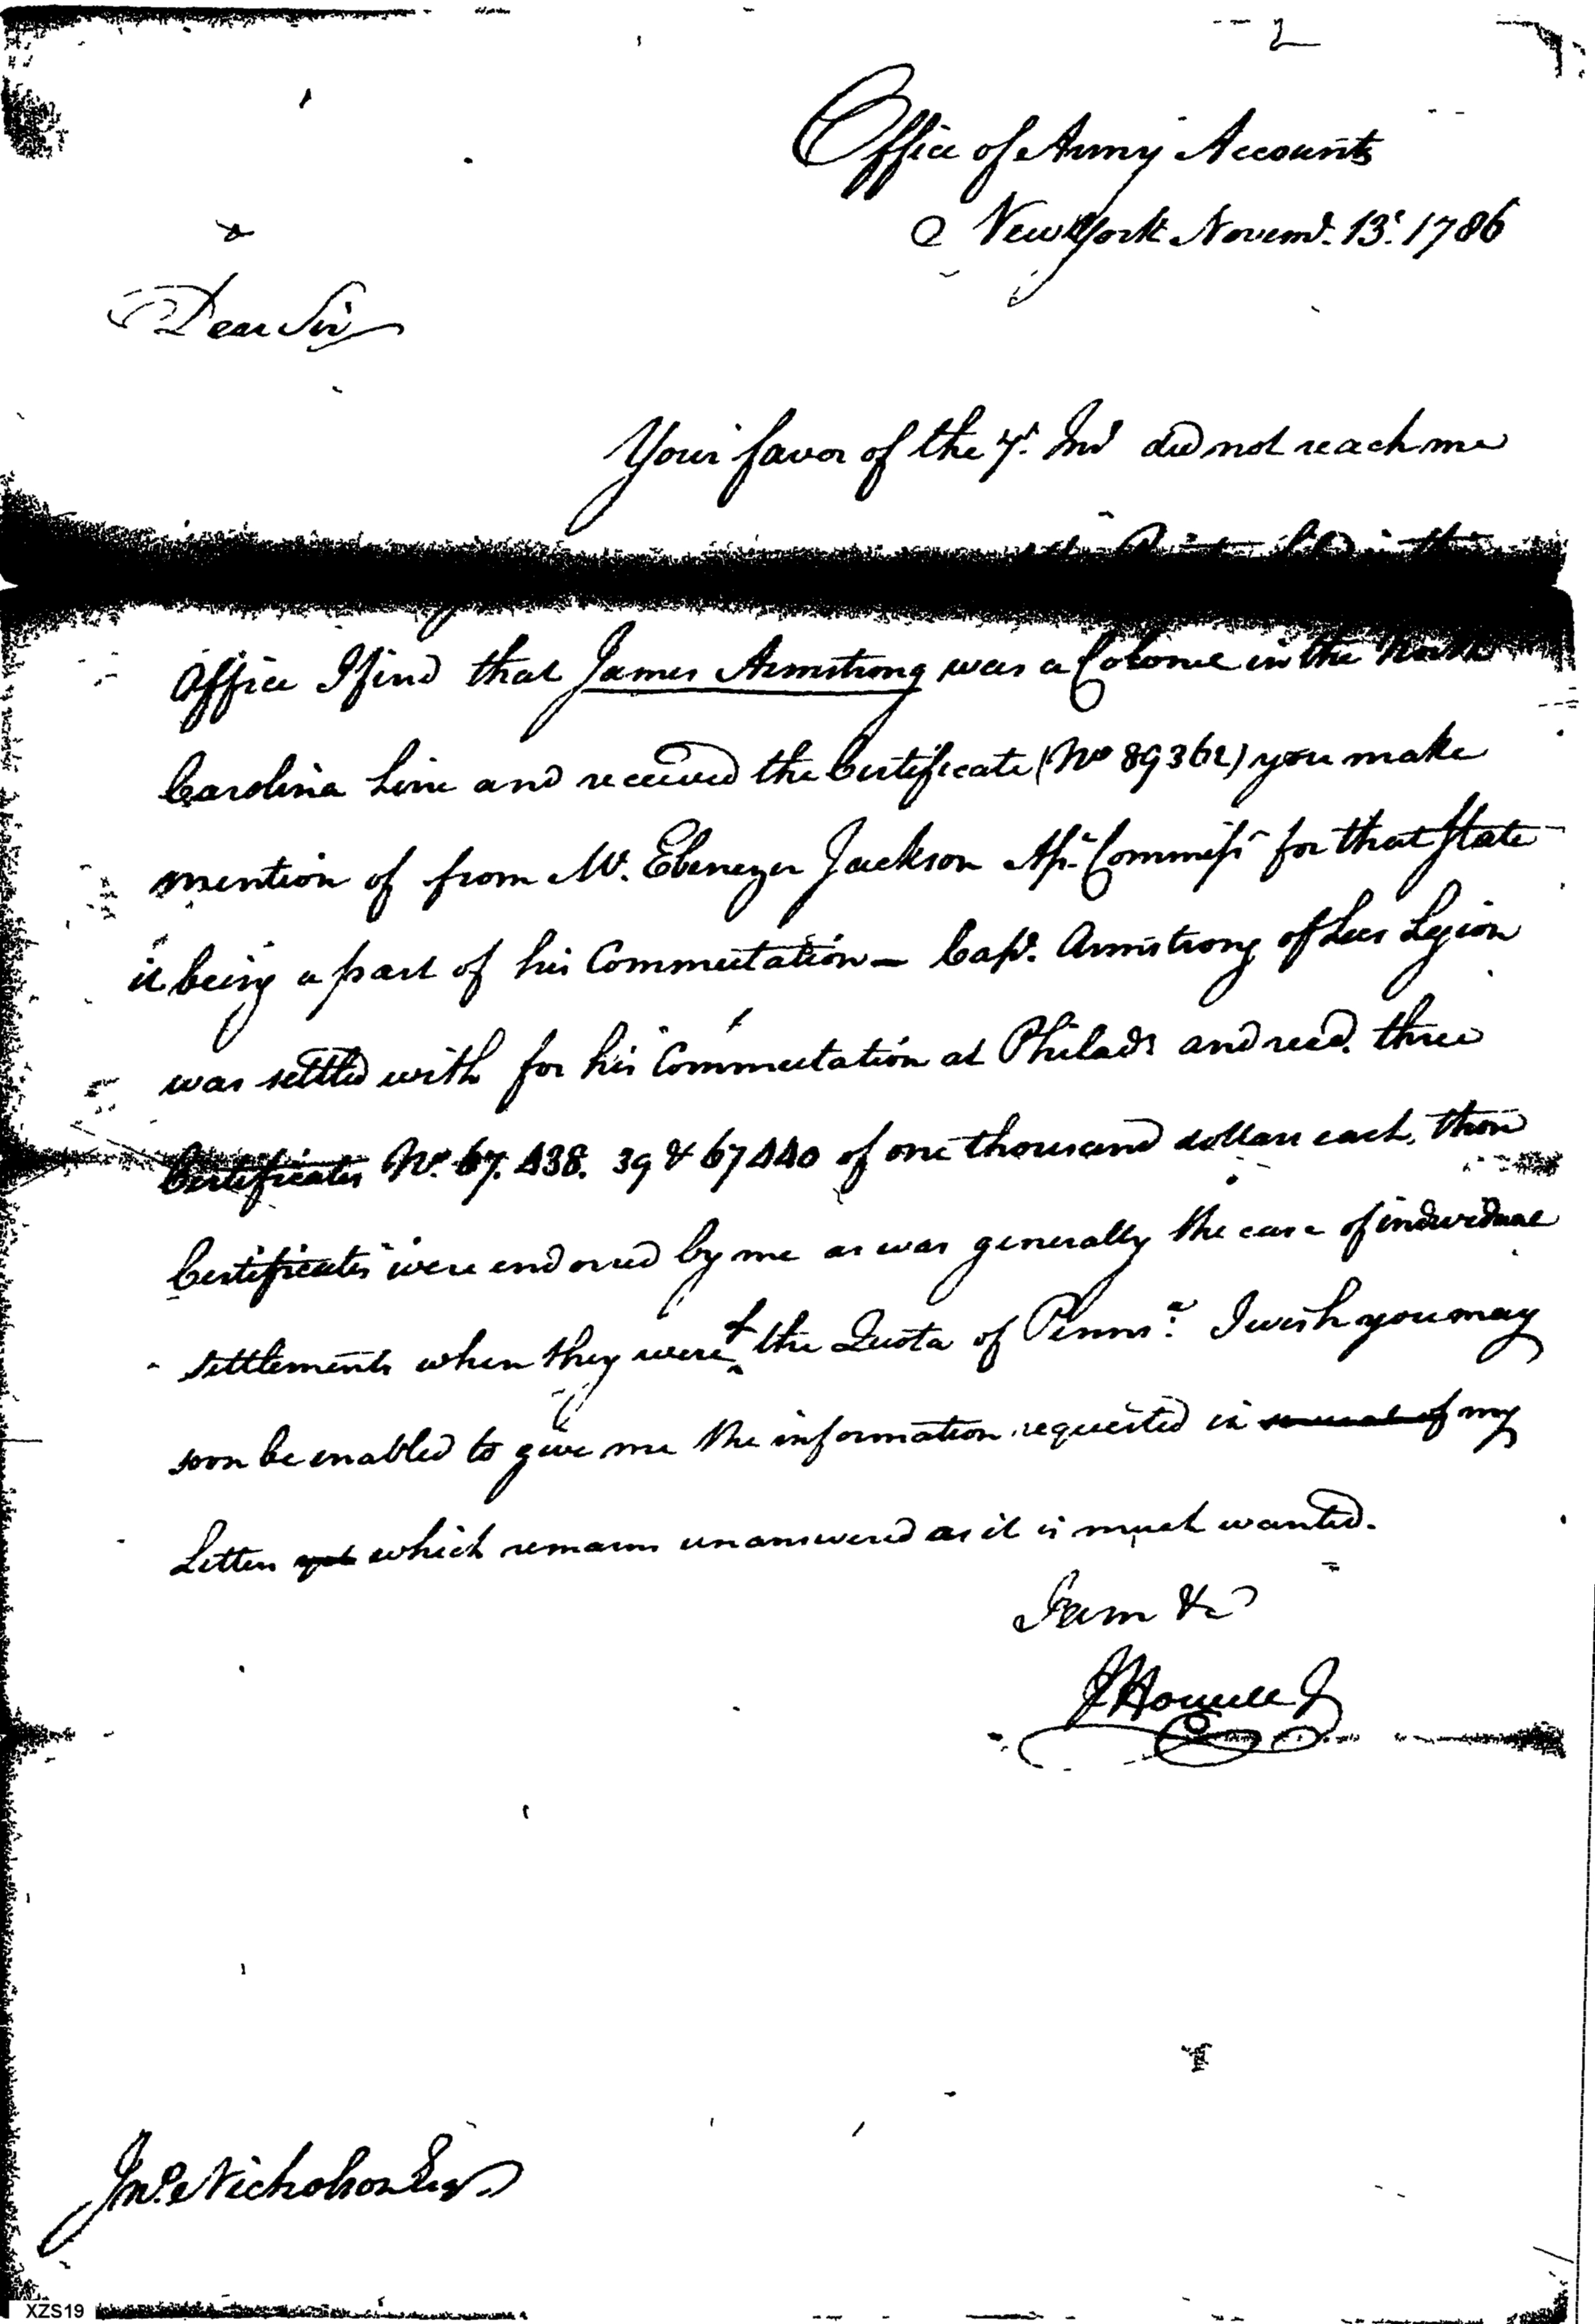 2
Office of Army Accounts
New York Novemr. 13th. 1786
Dear Sir
Your favor of the 7th. Inst did not reach me
in this
Office I find that James Armstrong was a Colonel in the North
Carolina Line and received the Certificate (No 89362) you make
mention of from Mr. Ebenezer Jackson Asst. Commissr for that State
it being a part of his Commutation — Capt. Armstrong of Lees Legion
was settled with for his Commutation at Philada and recd. three
Certificates No. 67.438. 39 & 67440 of one thousand dollars each, those
Certificates were endorsed by me as was generally the case of individual
settlements when they were of the Quota of Pennsa. I wish you may
soon be enabled to give me the information requested in several of my
Letters yet which remains unanswered as it is much wanted.
I am &c
J Howell J
Jno. Nicholson Esqr.
XZS19